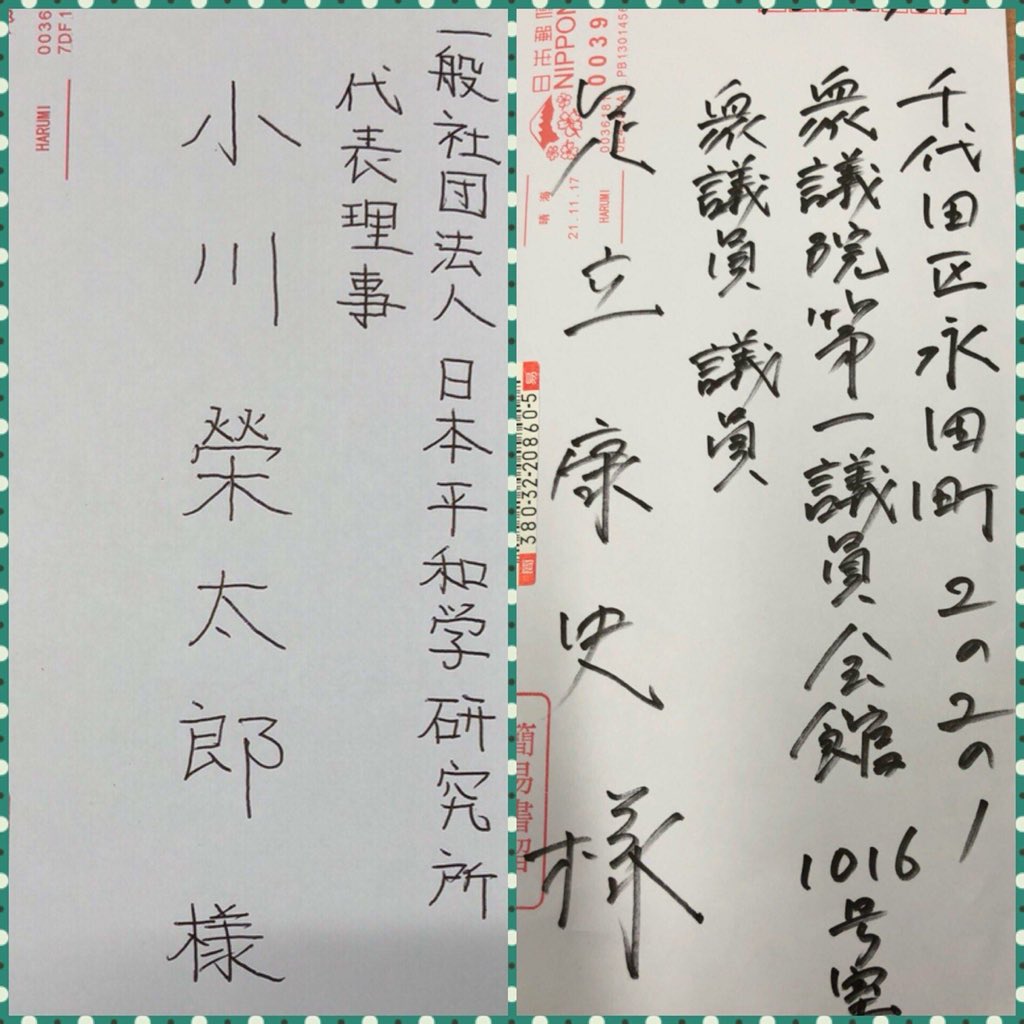 一般社団法人 日本平和学研究所
代表理事
小川榮太郎 様
0036
7DF1
HARUMI
千代田区永田町2の2の1
衆議院第一議員会館 1016号室
衆議員 議員
足立康史様
日本郵
NIPPON
0039
PB1301456
晴海
21.11.17
HARUMI
簡 380-32-20860-5 易
簡易書留